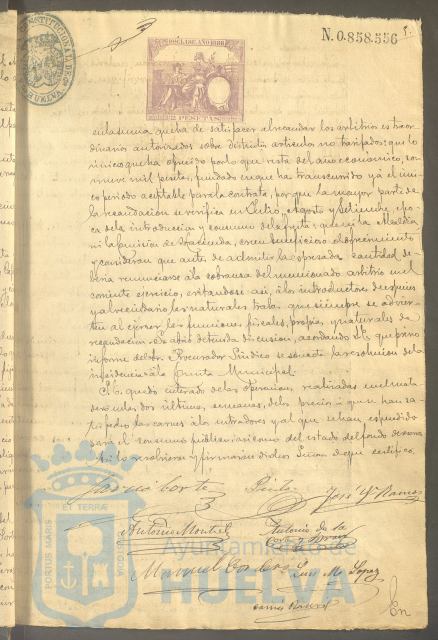 N.0.858.556
CONSTITUCIONAL
HUELVA
AÑO
2 PESETAS
en la suma que ha de satisfacer al recaudar los arbitrios extraor-
dinarios autorizados sobre distintos artículos no tarifados: que lo
único que ha ofrecido por lo que resta del año económico, son
nueve mil pesetas, fundado en que ha transcurrido ya el úni-
co periodo aceptable para la contrata, porque la mayor parte de
la recaudación se verifica en Julio, Agosto y Setiembre, épo-
ca de la introducción y consumo de la fruta: que ni la Alcaldía
ni la Comisión de Hacienda, creen beneficioso el ofrecimiento
y consideran que antes de admitir la expresada cantidad de-
bería renunciarse a la cobranza del mencionado arbitrio en el
corriente ejercicio, evitándose así, a los introductores de especies
y al vecindario las naturales trabas que siempre se advier-
ten al ejercer las funciones fiscales, propias y naturales de
recaudación. Se abrió detenida discusión, acordando S.E. que previo
informe del Sr. Procurador Síndico se someta la resolución de la
incidencia a la Junta Municipal.
S.E. quedó enterado de las operaciones realizadas en el mata-
dero en las dos últimas semanas, de los precios a que han sa-
lido las carnes a los introductores y al que se han expendido
para el consumo público: así como del estado del fondo de
Así lo resolvieron y firmarán dichos Sres. de que certifico.
José María Ramos
Antonio Montiel
Antonio de la
Corte y
Manuel
Luis M. López
En
PORTUS MARIS
ET TERRÆ
CUSTODIA
Ayuntamiento de
HUELVA